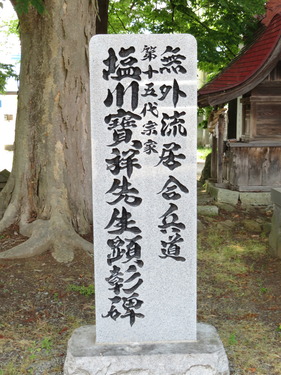 無外流居合兵道
第十五代宗家
塩川寶祥先生顕彰碑